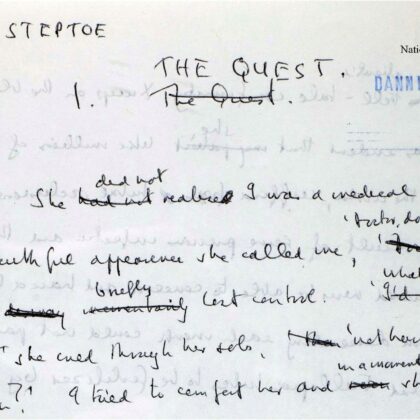 STEPTOE
Nati
THE QUEST.
DANN
1. The Quest.
she
did not
She had not realise I was a medical
'Doctor, do
uthful appearance she called me,
wha
briefly
momentarily lost control. 'I'd
'not her
she cried through her sobs,
in a moment
?' I tried to comfort her and soon sh